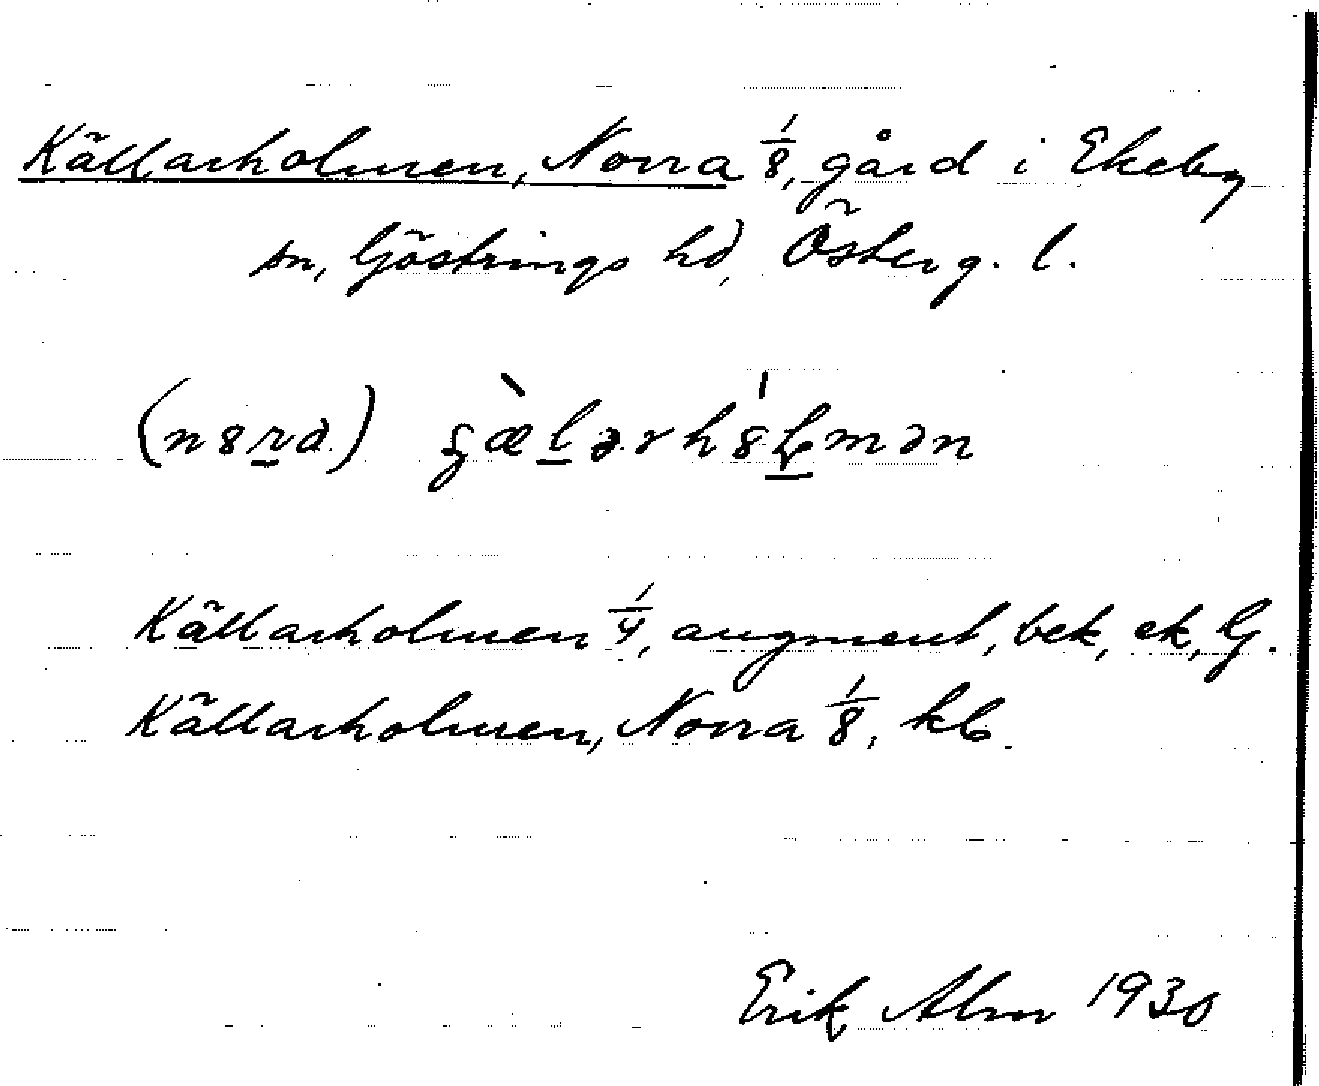 Källarholmen, Norra 1/8, gård i Ekeby
sn, Göstrings hd, Österg. l.
(n8ra)
Källarholmen 1/4, augment, bek, ek, G.
Källarholmen, Norra 1/8, kb.
Erik Alm 1930